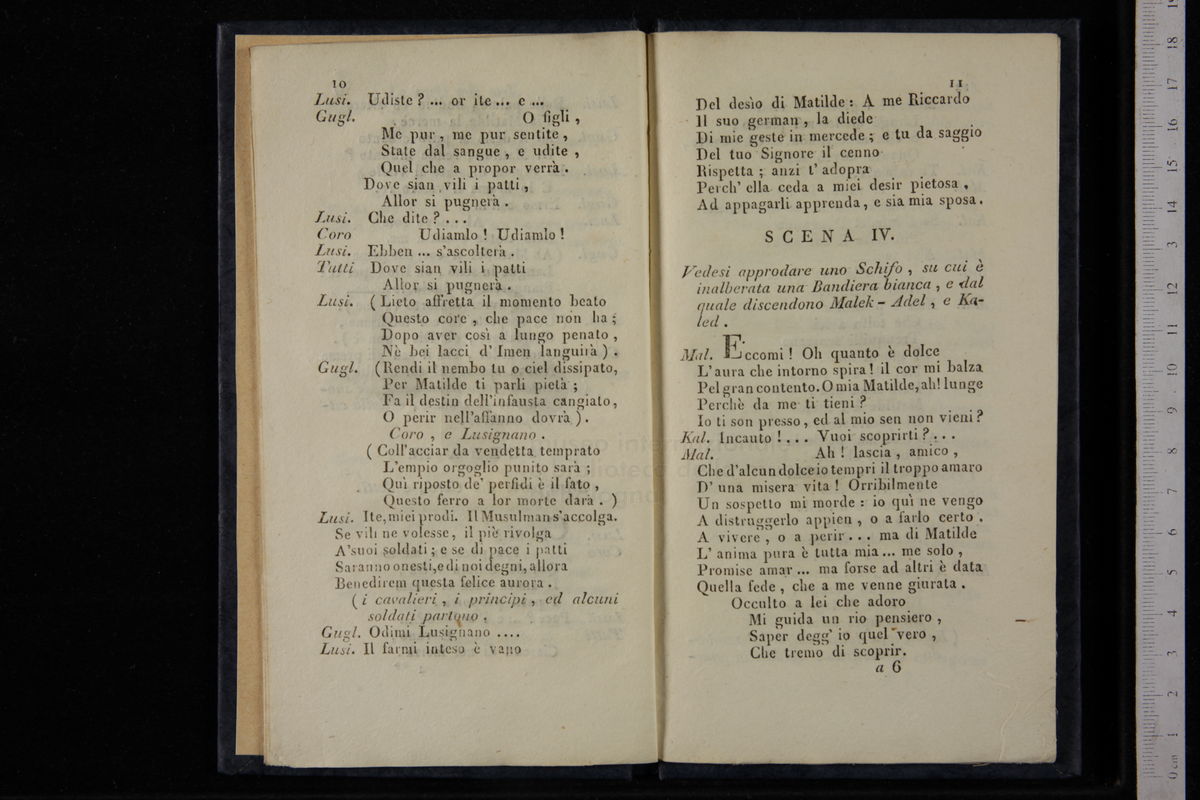 10
Lusi. Udiste ? ... or ite ... e ...
Gugl. O figli ,
Me pur , me pur sentite ,
State dal sangue , e udite ,
Quel che a propor verrà .
Dove sian vili i patti ,
Allor si pugnerà .
Lusi. Che dite ? . . .
Coro Udiamlo ! Udiamlo !
Lusi. Ebben ... s'ascolterà .
Tutti Dove sian vili i patti
Allor si pugnerà .
Lusi. ( Lieto affretta il momento beato
Questo core , che pace non ha ;
Dopo aver così a lungo penato ,
Nè bei lacci d' Imen languirà ) .
Gugl. (Rendi il nembo tu o ciel dissipato,
Per Matilde ti parli pietà ;
Fa il destin dell'infausta cangiato,
O perir nell'affanno dovrà ) .
Coro , e Lusignano .
( Coll'acciar da vendetta temprato
L'empio orgoglio punito sarà ;
Qui riposto de' perfidi è il fato ,
Questo ferro a lor morte darà . )
Lusi. Ite, miei prodi. Il Musulman s'accolga.
Se vili ne volesse, il piè rivolga
A'suoi soldati ; e se di pace i patti
Saranno onesti, e di noi degni, allora
Benedirem questa felice aurora .
( i cavalieri , i principi , ed alcuni
soldati partono .
Gugl. Odimi Lusignano ....
Lusi. Il farmi inteso è vano
11
Del desìo di Matilde : A me Riccardo
Il suo german , la diede
Di mie geste in mercede ; e tu da saggio
Del tuo Signore il cenno
Rispetta ; anzi t' adopra
Perch' ella ceda a miei desir pietosa ,
Ad appagarli apprenda, e sia mia sposa.
SCENA IV.
Vedesi approdare uno Schifo , su cui è
inalberata una Bandiera bianca , e dal
quale discendono Malek - Adel , e Ka-
led .
Mal. Eccomi ! Oh quanto è dolce
L'aura che intorno spira ! il cor mi balza
Pel gran contento. O mia Matilde, ah! lunge
Perchè da me ti tieni ?
Io ti son presso , ed al mio sen non vieni ?
Kal. Incauto ! . . . Vuoi scoprirti ? . . .
Mal. Ah ! lascia , amico ,
Che d'alcun dolce io tempri il troppo amaro
D' una misera vita ! Orribilmente
Un sospetto mi morde : io quì ne vengo
A distruggerlo appien , o a farlo certo .
A vivere , o a perir . . . ma di Matilde
L' anima pura è tutta mia ... me solo ,
Promise amar ... ma forse ad altri è data
Quella fede , che a me venne giurata .
Occulto a lei che adoro
Mi guida un rio pensiero ,
Saper degg' io quel vero ,
Che tremo di scoprir.
a 6